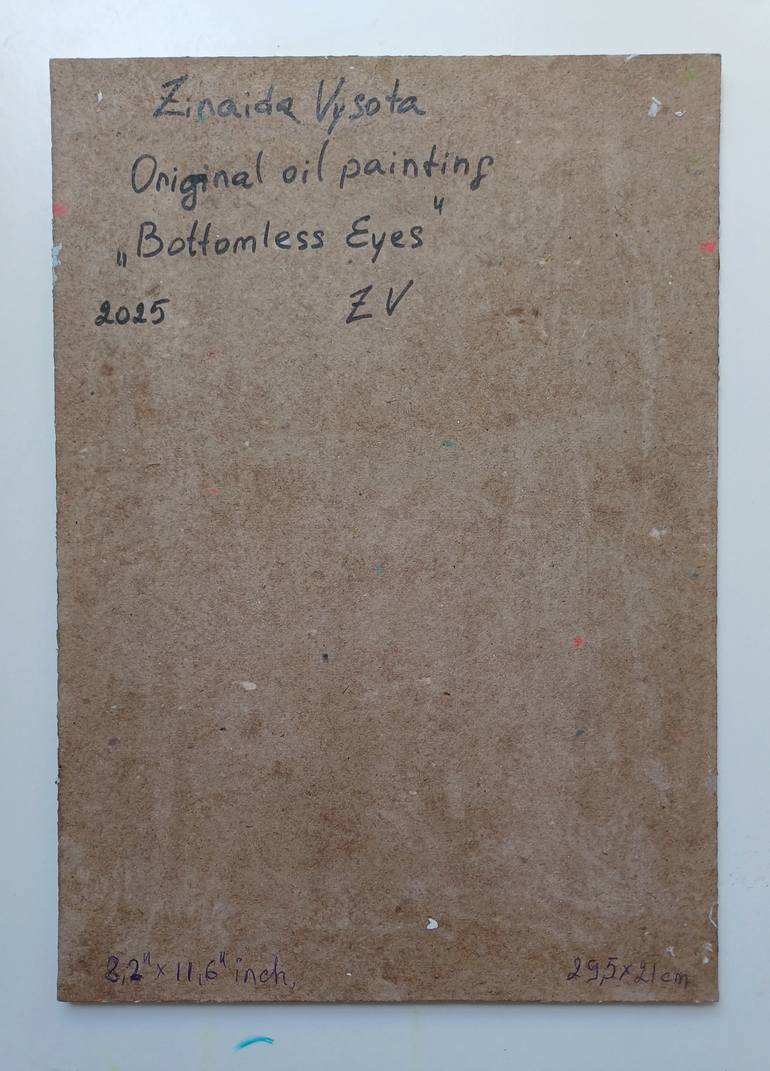 Zinaida Vysota
Original oil painting
„Bottomless Eyes"
2025 ZV
8,2" x 11,6" inch,
29,5x21cm